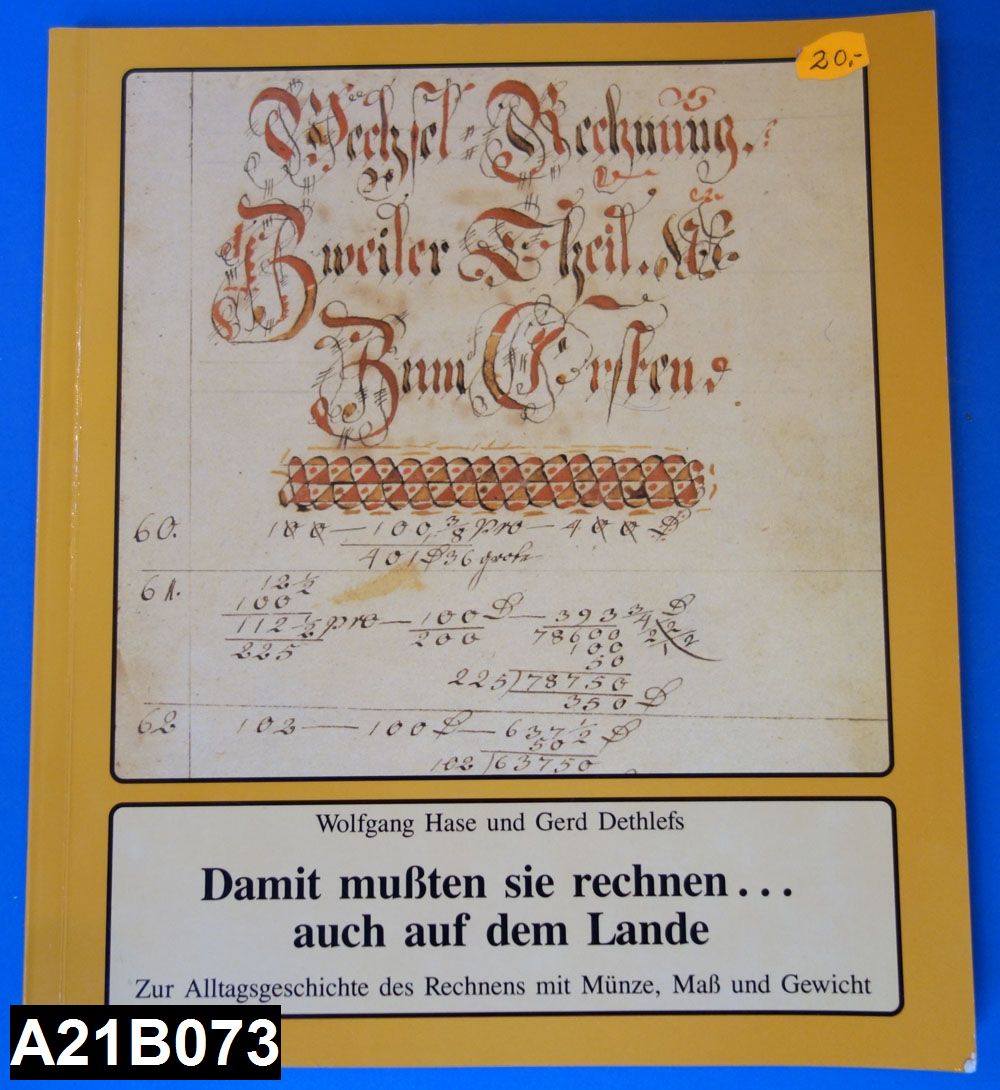 20.-
Wechsel-Rechnung.
Zweiter Theil.
Zum Ersten
60. 100 — 100 3/8 pro — 400
401 36 grote
61. 12 1/2
100
112 1/2 pro — 100 — 393 3/4
225 200 78600
100
50
225 / 78750
350
62 102 — 100 — 637 1/2
50
102 / 63750
Wolfgang Hase und Gerd Dethlefs
Damit mußten sie rechnen...
auch auf dem Lande
Zur Alltagsgeschichte des Rechnens mit Münze, Maß und Gewicht
A21B073